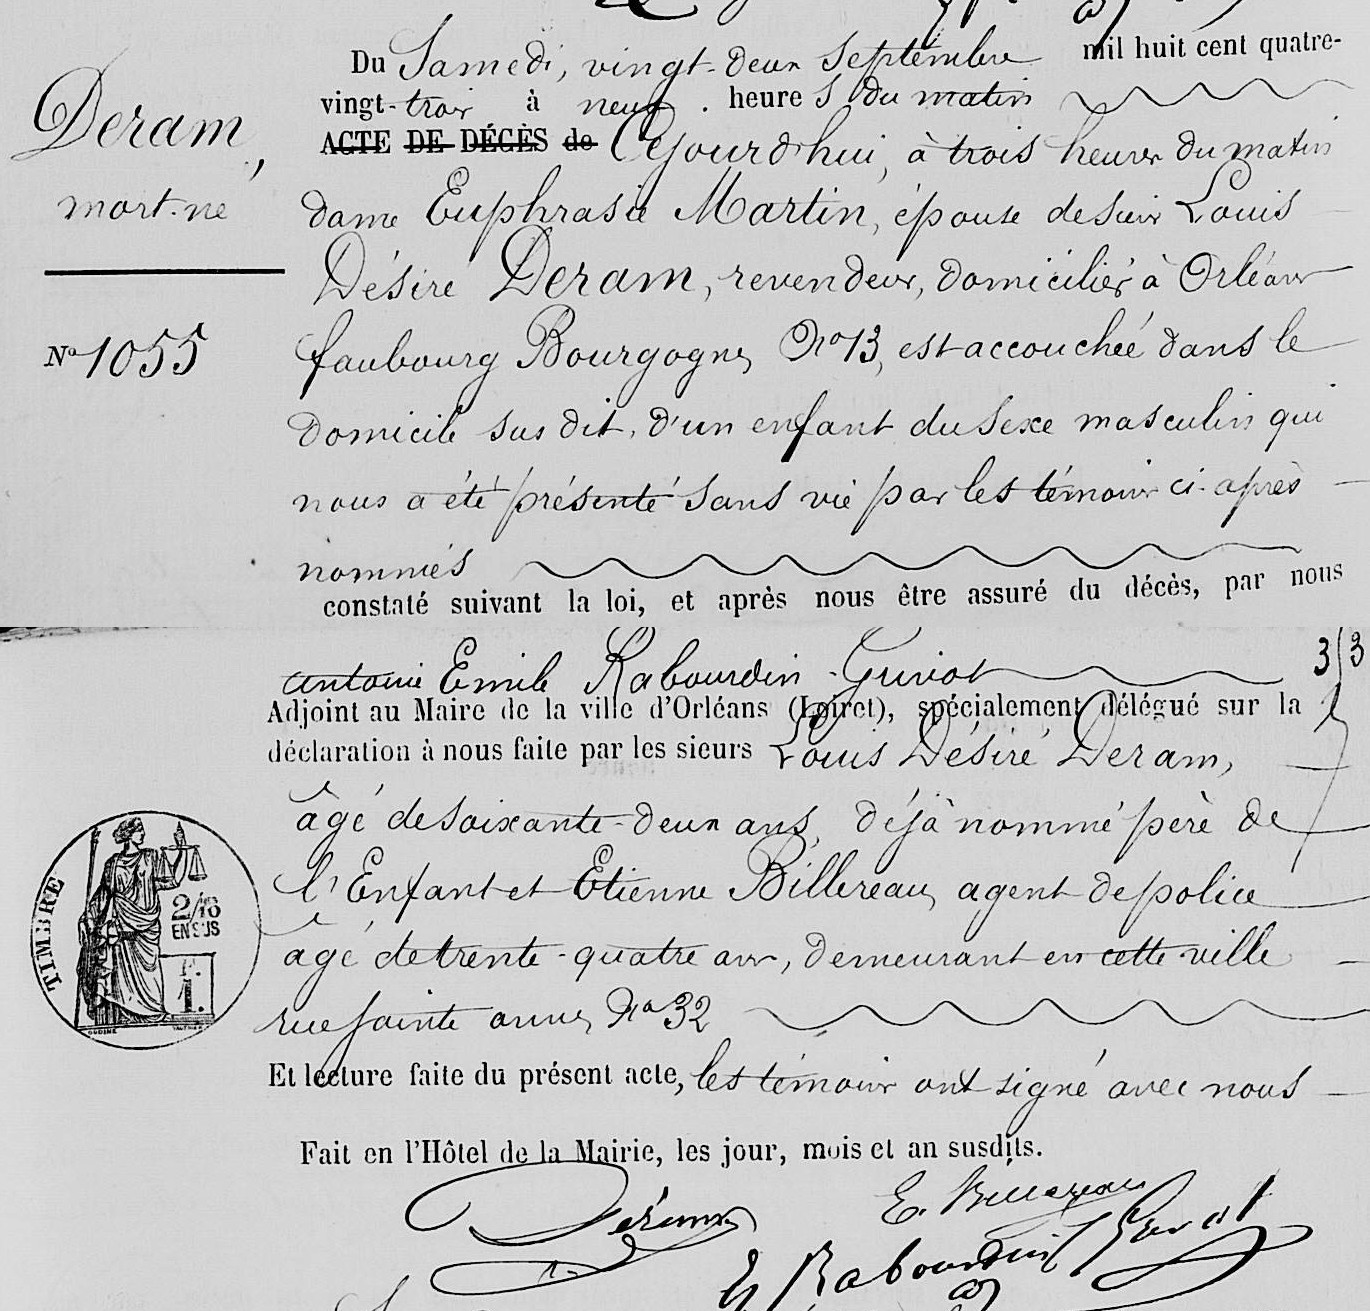 Du Samedi, vingt-deux Septembre mil huit cent quatre-
vingt-trois à neuf heures du matin
ACTE DE DÉCÈS de Cejourd'hui, à trois heures du matin
Deram,
mort-né
dame Euphrasie Martin, épouse de sieur Louis
Désiré Deram, revendeur, domiciliés à Orléans
N° 1055
faubourg Bourgogne, No 13, est accouchée dans le
domicile sus dit, d'un enfant du sexe masculin qui
nous a été présenté sans vie par les témoins ci-après
nommés
constaté suivant la loi, et après nous être assuré du décès, par nous
Antoine Emile Rabourdin-Grivot
Adjoint au Maire de la ville d'Orléans (Loiret), spécialement délégué sur la
déclaration à nous faite par les sieurs Louis Désiré Deram,
âgé de soixante-deux ans, déjà nommé père de
l'Enfant et Etienne Billereau, agent de police
âgé de trente-quatre ans, demeurant en cette ville
rue sainte anne, No 32
TIMBRE
2/10
EN SUS
1.
Et lecture faite du présent acte, les témoins ont signé avec nous
Fait en l'Hôtel de la Mairie, les jour, mois et an susdits.
Déram
E. Billereau
E Rabourdin Grivot